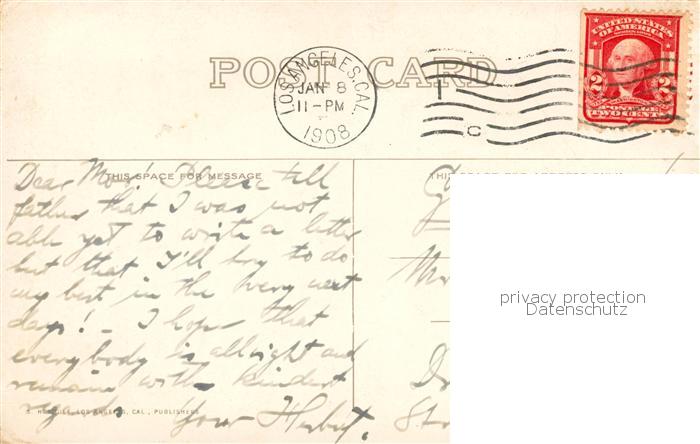 UNITED STATES
OF AMERICA
2 2
POSTAGE
TWO CENTS
POST CARD
LOS ANGELES, CAL.
JAN 8
11-PM
1908
C
THIS SPACE FOR MESSAGE
Dear Mom! Please tell
father that I was not
able yet to write a letter
but that I'll try to do
my best in the very next
days! - I hope that
everybody is allright and
remain with kindest
regards Your Herbert.
LOS ANGELES, CAL., PUBLISHERS
THIS SPACE FOR
privacy protection
Datenschutz